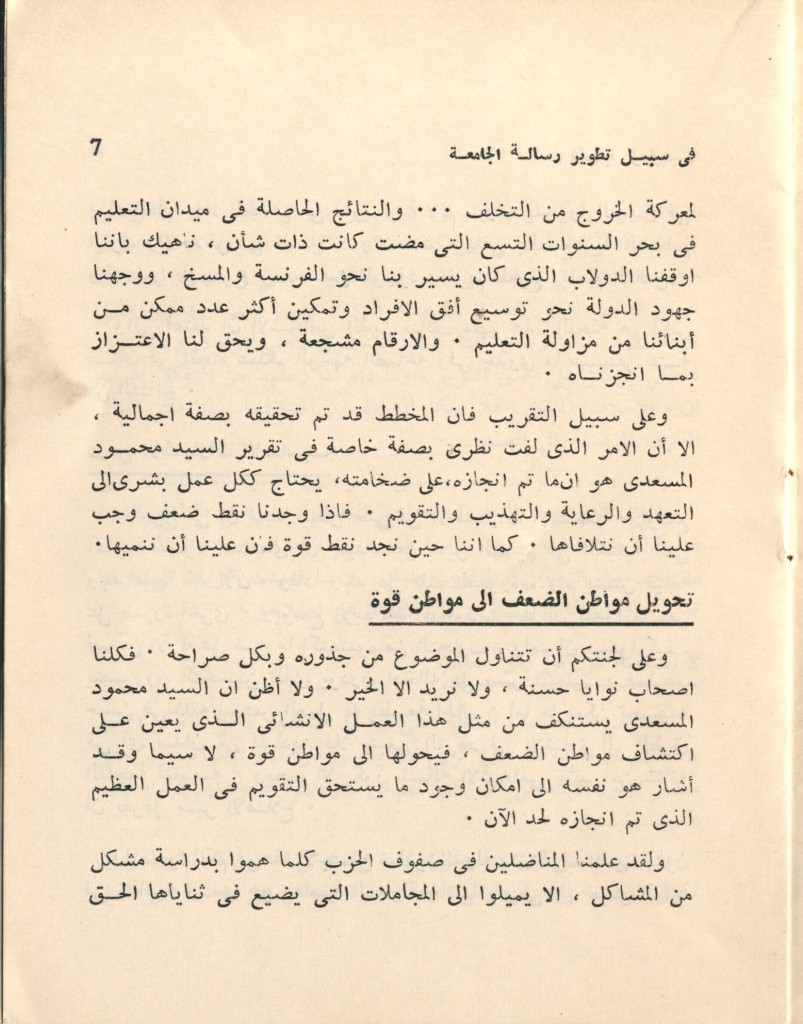 فى سبيـل تطوير رسالـة الجامعـة 7
لمعركة الخروج من التخلف ٠٠٠ والنتائج الحاصلة فى ميدان التعليم
فى بحر السنوات التسع التى مضت كانت ذات شأن ، ناهيك باننا
اوقفنا الدولاب الذى كان يسير بنا نحو الفرنسة والمسخ ، ووجهنا
جهود الدولة نحو توسيع أفق الافراد وتمكين أكثر عدد ممكن مـن
أبنائنا من مزاولة التعليم ٠ والارقام مشجعة ، ويحق لنا الاعتـزاز
بمـا انجزنـاه ٠
وعلى سبيل التقريب فان المخطط قد تم تحقيقه بصفة اجمالية ،
الا أن الامر الذى لفت نظرى بصفة خاصة فى تقرير السيد محمـود
المسعدى هو ان ما تم انجازه،على ضخامته، يحتاج ككل عمل بشرى الى
التعهد والرعاية والتهذيب والتقويم ٠ فاذا وجدنا نقط ضعف وجب
علينا أن نتلافاها ٠ كما اننا حين نجد نقط قوة فان علينا أن ننميها٠
تحويل مواطن الضعف الى مواطن قوة
وعلى لجنتكم أن تتناول الموضوع من جذوره وبكل صراحة ٠ فكلنا
اصحاب نوايا حسنة ، ولا نريد الا الخير ٠ ولا أظن ان السيد محمود
المسعدى يستنكف من مثل هذا العمـل الانشائى الـذى يعين علـى
اكتشاف مواطن الضعف ، فيحولها الى مواطن قوة ، لا سيما وقـد
أشار هو نفسه الى امكان وجود ما يستحق التقويم فى العمل العظيم
الذى تم انجازه لحد الآن ٠
ولقد علمنا المناضلين فى صفوف الحزب كلما هموا بدراسة مشكل
من المشاكل ، الا يميلوا الى المجاملات التى يضيع فى ثناياها الحـق